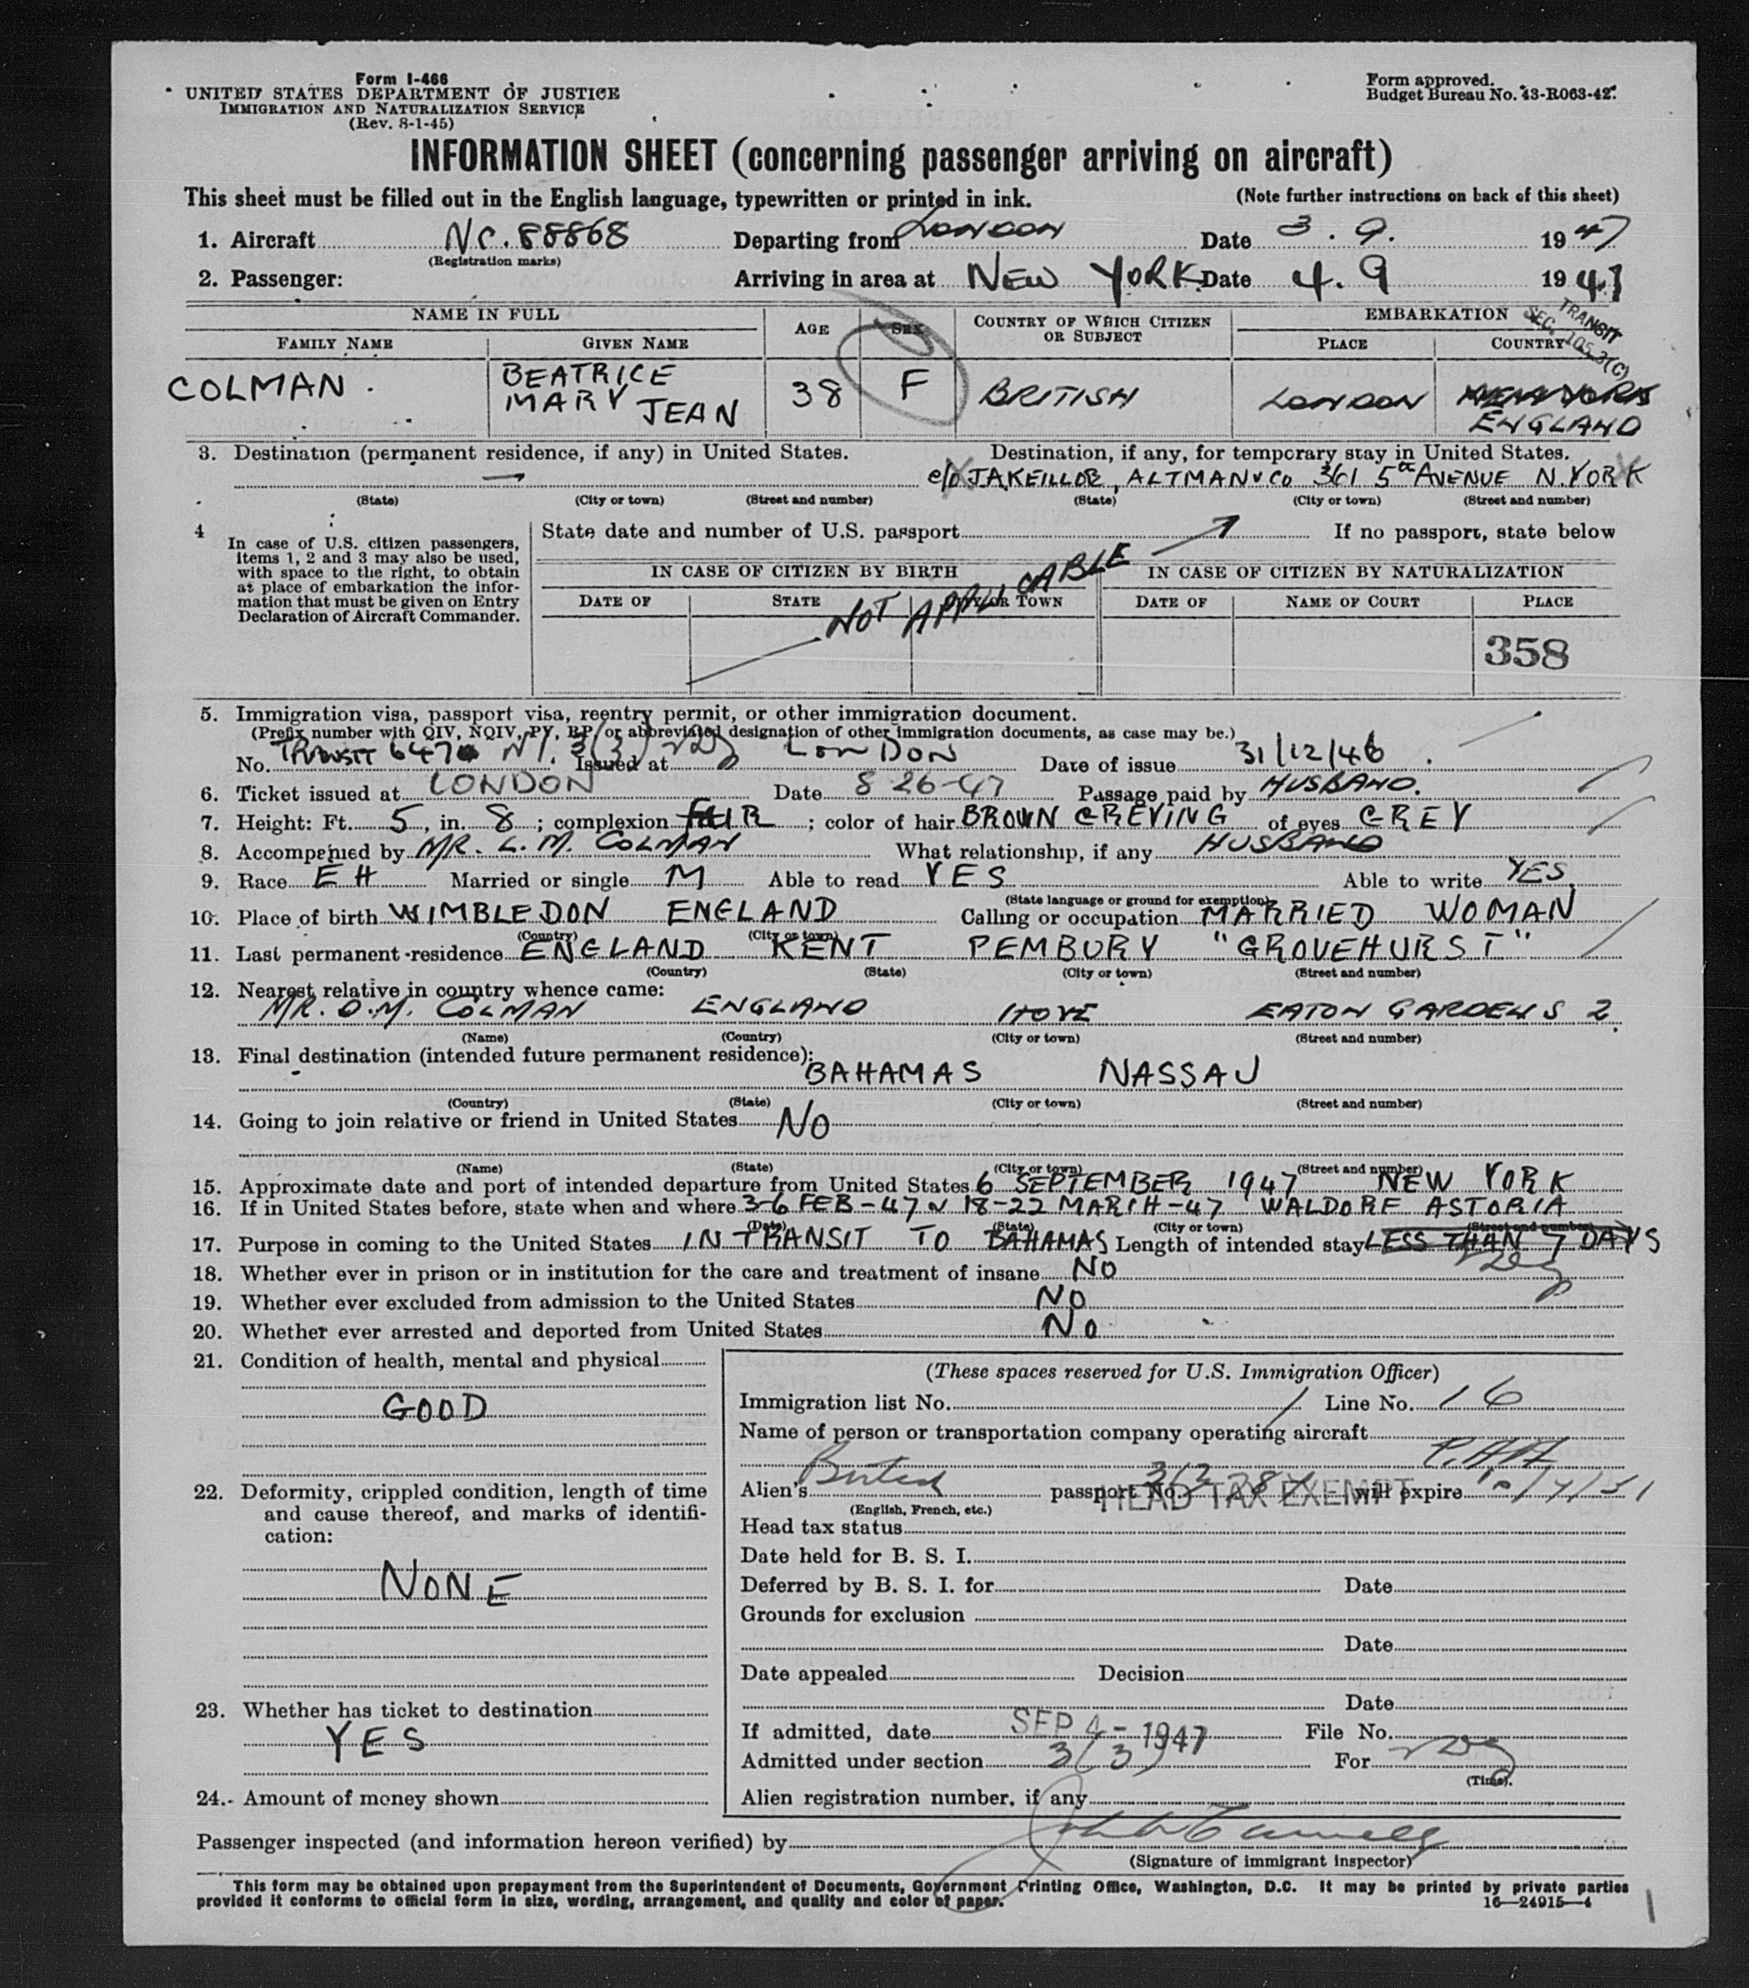 Form I-466
UNITED STATES DEPARTMENT OF JUSTICE
IMMIGRATION AND NATURALIZATION SERVICE
(Rev. 8-1-45)
Form approved.
Budget Bureau No. 43-R063-42.
INFORMATION SHEET (concerning passenger arriving on aircraft)
This sheet must be filled out in the English language, typewritten or printed in ink. (Note further instructions on back of this sheet)
1. Aircraft NC. 88868 Departing from LONDON Date 3. 9. 1947
(Registration marks)
2. Passenger: Arriving in area at NEW YORK Date 4. 9 1947
NAME IN FULL AGE SEX COUNTRY OF WHICH CITIZEN OR SUBJECT EMBARKATION
FAMILY NAME GIVEN NAME PLACE COUNTRY
TRANSIT
SEC. 105.3(C)
COLMAN. BEATRICE MARY JEAN 38 F BRITISH LONDON NEW YORK ENGLAND
3. Destination (permanent residence, if any) in United States. Destination, if any, for temporary stay in United States.
— c/o J.A.KEILLOR, ALTMAN & Co 361 5th AVENUE N.YORK
(State) (City or town) (Street and number) (State) (City or town) (Street and number)
4 In case of U.S. citizen passengers, items 1, 2 and 3 may also be used, with space to the right, to obtain at place of embarkation the information that must be given on Entry Declaration of Aircraft Commander.
State date and number of U.S. passport If no passport, state below
IN CASE OF CITIZEN BY BIRTH IN CASE OF CITIZEN BY NATURALIZATION
DATE OF STATE CITY OR TOWN DATE OF NAME OF COURT PLACE
NOT APPLICABLE
358
5. Immigration visa, passport visa, reentry permit, or other immigration document.
(Prefix number with QIV, NQIV, PV, RP, or abbreviated designation of other immigration documents, as case may be.)
No. TRANSIT 6470 Issued at LONDON Date of issue 31/12/46
6. Ticket issued at LONDON Date 8-26-47 Passage paid by HUSBAND.
7. Height: Ft. 5, in. 8; complexion FAIR; color of hair BROWN GREYING of eyes GREY
8. Accompanied by MR. L. M. COLMAN What relationship, if any HUSBAND
9. Race EH Married or single M Able to read YES Able to write YES
(State language or ground for exemption)
10. Place of birth WIMBLEDON ENGLAND Calling or occupation MARRIED WOMAN
(Country) (City or town)
11. Last permanent residence ENGLAND KENT PEMBURY "GROVEHURST"
(Country) (State) (City or town) (Street and number)
12. Nearest relative in country whence came:
MR. D.M. COLMAN ENGLAND HOVE EATON GARDENS 2
(Name) (Country) (City or town) (Street and number)
13. Final destination (intended future permanent residence):
BAHAMAS NASSAU
(Country) (State) (City or town) (Street and number)
14. Going to join relative or friend in United States NO
(Name) (State) (City or town) (Street and number)
15. Approximate date and port of intended departure from United States 6 SEPTEMBER 1947 NEW YORK
16. If in United States before, state when and where 3-6 FEB-47 & 18-22 MARCH-47 WALDORF ASTORIA
(Date) (State) (City or town) (Street and number)
17. Purpose in coming to the United States IN TRANSIT TO BAHAMAS Length of intended stay LESS THAN 7 DAYS
18. Whether ever in prison or in institution for the care and treatment of insane NO
19. Whether ever excluded from admission to the United States NO
20. Whether ever arrested and deported from United States NO
21. Condition of health, mental and physical
GOOD
22. Deformity, crippled condition, length of time and cause thereof, and marks of identification:
NONE
23. Whether has ticket to destination
YES
24. Amount of money shown
(These spaces reserved for U.S. Immigration Officer)
Immigration list No. 1 Line No. 16
Name of person or transportation company operating aircraft
P.A.A
Alien's British passport No. will expire
(English, French, etc.)
HEAD TAX EXEMPT
Head tax status
Date held for B. S. I.
Deferred by B. S. I. for Date
Grounds for exclusion
Date
Date appealed Decision
Date
If admitted, date SEP 4 - 1947 File No.
Admitted under section 3(3) For
(Time).
Alien registration number, if any
Passenger inspected (and information hereon verified) by
(Signature of immigrant inspector)
This form may be obtained upon prepayment from the Superintendent of Documents, Government Printing Office, Washington, D.C. It may be printed by private parties
provided it conforms to official form in size, wording, arrangement, and quality and color of paper. 16—24915-4
1